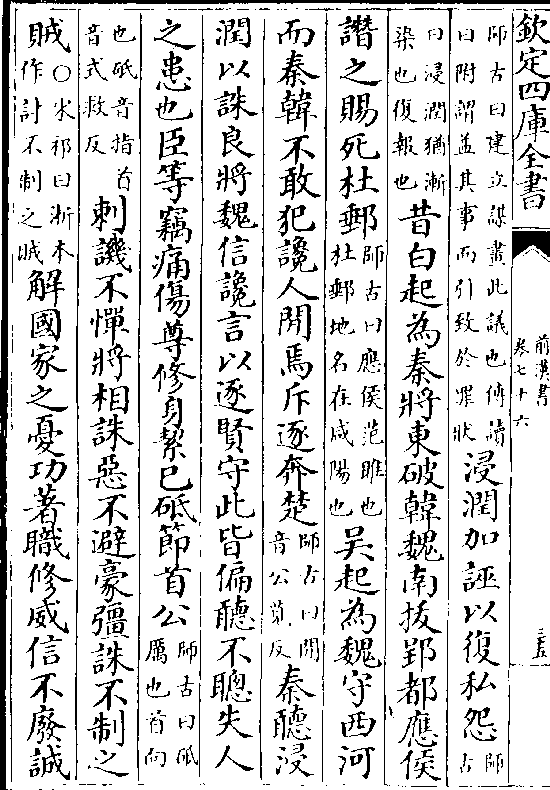 欽定四庫全書
前漢書
卷七十六
師古曰建立謀畫此議也傅讀曰附謂益其事而引致於罪狀浸潤加誣以復私怨師古
曰浸潤猶漸染也復報也昔白起為秦將東破韓魏南拔郢都應侯
譖之賜死杜郵師古曰應侯范雎也杜郵地名在咸陽也吳起為魏守西河
而秦韓不敢犯讒人間焉斥逐奔楚師古曰間音公莧反秦聽浸
潤以誅良將魏信讒言以逐賢守此皆偏聽不聰失人
之患也臣等竊痛傷尊修身絜已砥節首公師古曰砥厲也首向
也砥音指首音式救反刺譏不憚將相誅惡不避豪彊誅不制之
賊○宋祁曰浙本作計不制之賊解國家之憂功著職修威信不廢誠